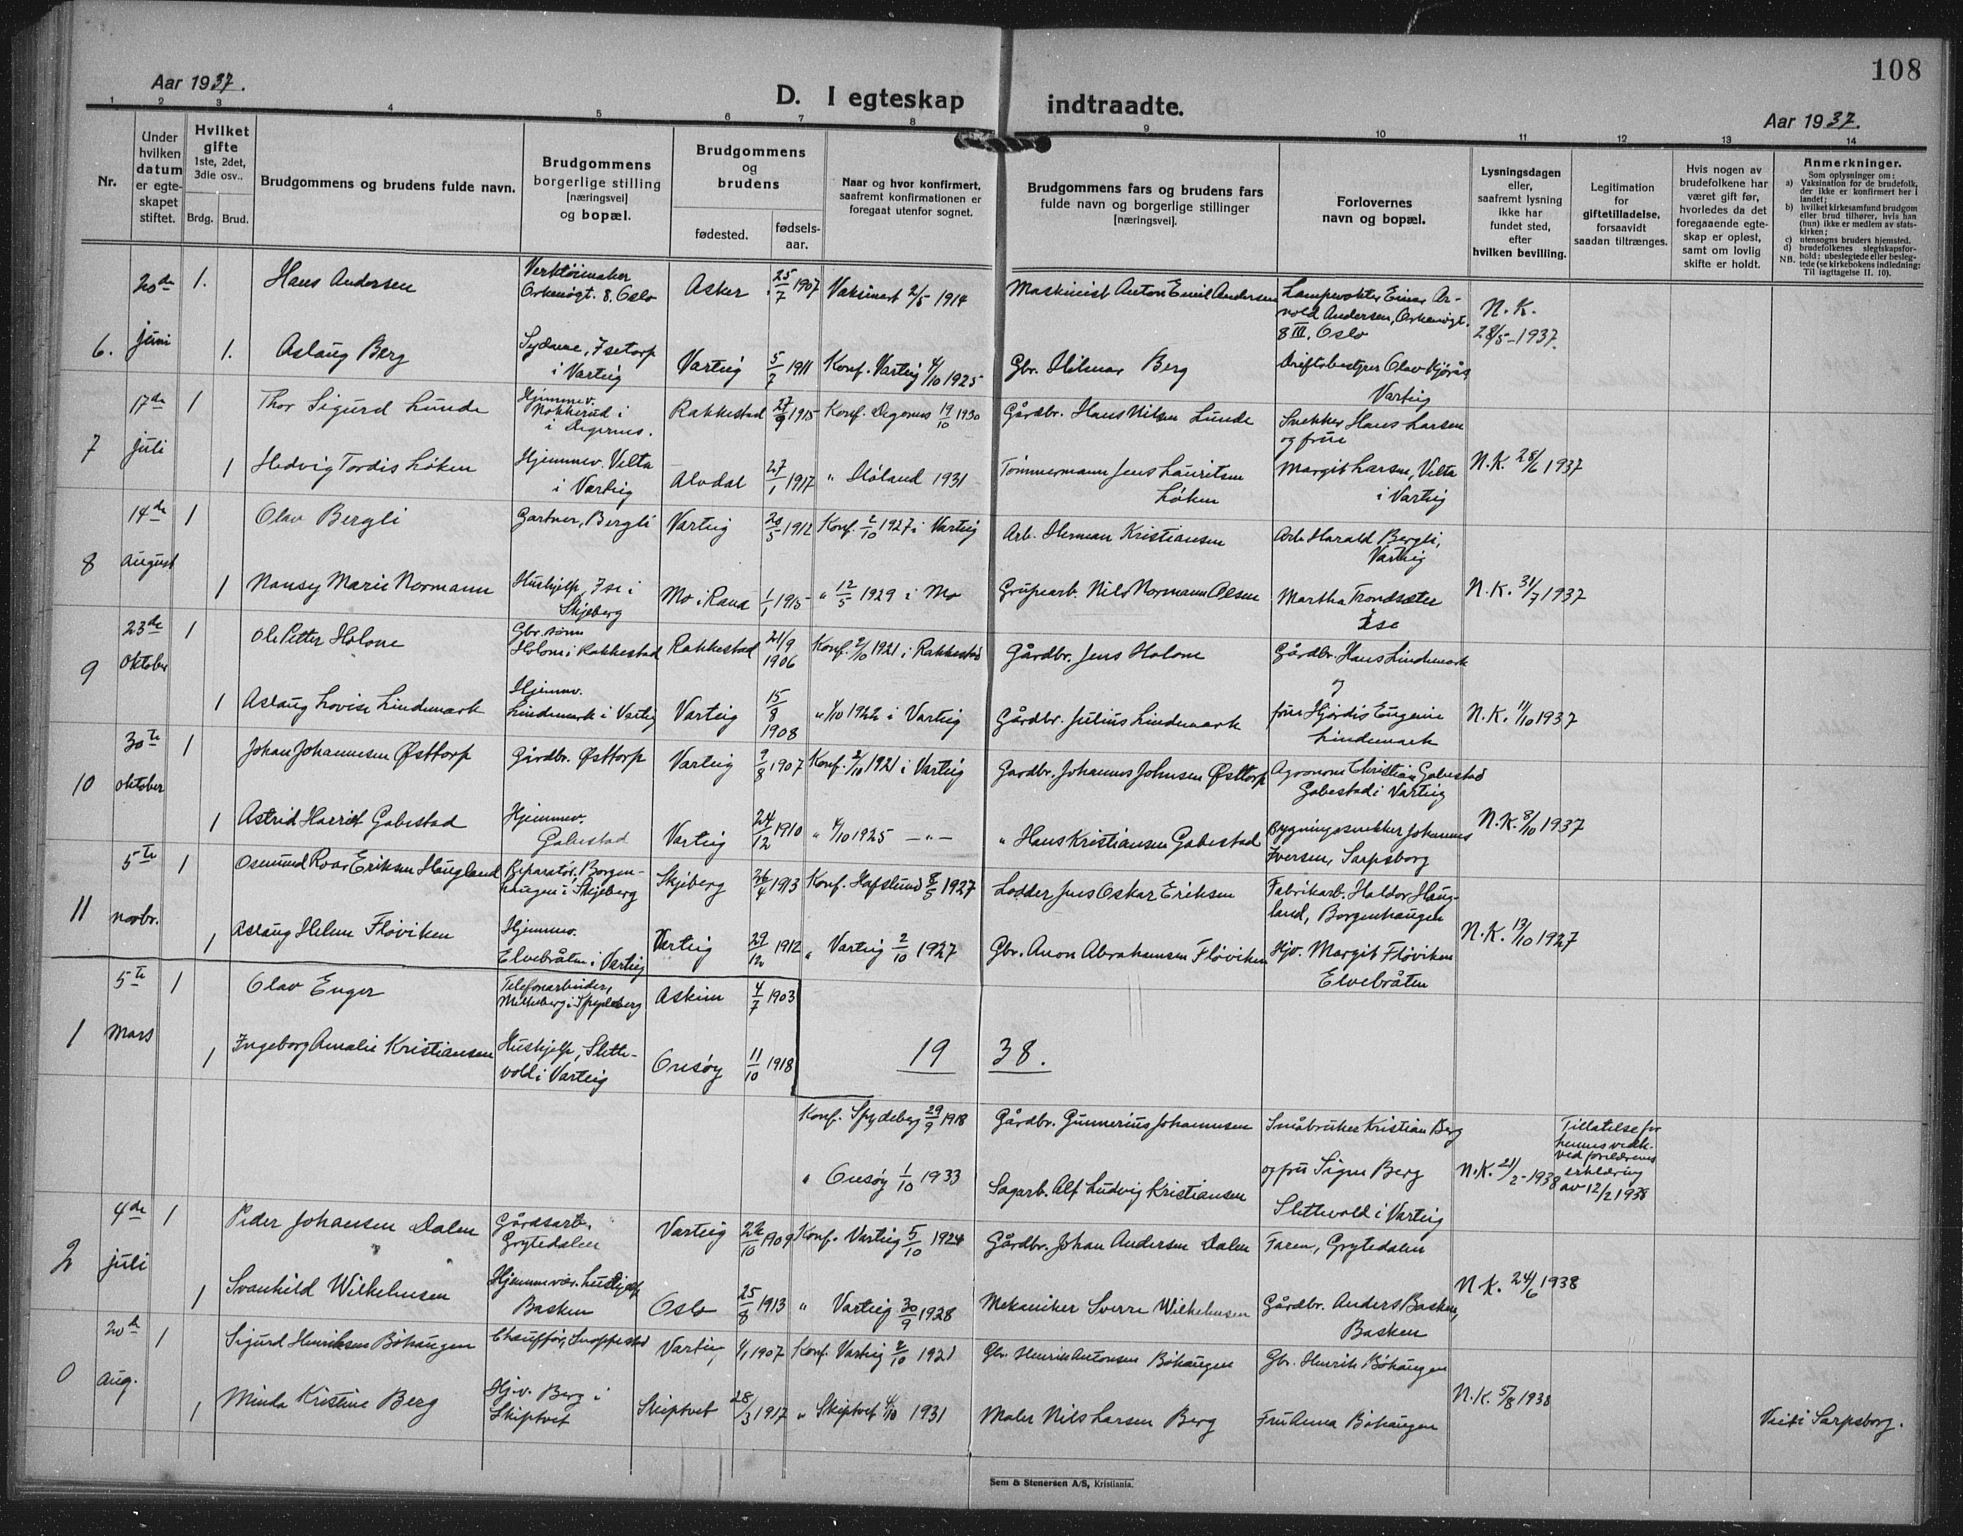 108
Aar 1937.
D. I egteskap indtraadte.
Aar 1937.
1 2 3 4 5 6 7 8 9 10 11 12 13 14
Nr.
Under hvilken datum er egteskapet stiftet.
Hvilket gifte 1ste, 2det, 3die osv..
Brdg. Brud.
Brudgommens og brudens fulde navn.
Brudgommens borgerlige stilling [næringsvei] og bopæl.
Brudgommens og brudens
fødested.
fødsels-aar.
Naar og hvor konfirmert, saafremt konfirmationen er foregaat utenfor sognet.
Brudgommens fars og brudens fars fulde navn og borgerlige stillinger [næringsvei].
Forlovernes navn og bopæl.
Lysningsdagen eller, saafremt lysning ikke har fundet sted, efter hvilken bevilling.
Legitimation for giftetilladelse. forsaavidt saadan tiltrænges.
Hvis nogen av brudefolkene har været gift før, hvorledes da det foregaaende egteskap er opløst, samt om lovlig skifte er holdt.
Anmerkninger.
Som oplysninger om:
a) Vaksination for de brudefolk, der ikke er konfirmert her i landet;
b) hvilket kirkesamfund brudgom eller brud tilhører, hvis han (hun) ikke er medlem av statskirken;
c) utensogns bruders hjemsted.
d) brudefolkenes slegtskapsforhold: ubeslegtede eller beslegtede (se kirkebokens indledning:
NB. Til iagttagelse II. 10).
6. 20de juni 1. Hans Andersen Verktøimaker Oskensgt. 8. Oslo Asker 25/7 1907 Vaksinert 2/5 1914 Maskinist Anton Emil Andersen Lampevokter Einar Arnold Andersen, 8 III, Oslo N.K. 28/5-1937.
1. Aslaug Berg Sydame, Isetorp i Varteig Varteig 5/7 1911 Konf. Varteig 4/10 1925 Gbr. Hilmar Berg Driftsbestyrer Olav Kjørås Varteig
7 17de juli 1 Thor Sigurd Lunde Hjemmev. i Degernes. Rakkestad 27/9 1915 Konf. Degernes 19/10 1930 Gårdbr. Hans Nilsen Lunde Snekker Hans Larsen og frue
1 Hedvig Tordis Løken Hjemmev. Velta i Varteig Alvdal 27/1 1917 " Høland 1931 Tømmermann Jens Lauritsen Løken Margit Larsen, Velta i Varteig N.K. 28/6 1937
8 14de august 1 Olav Bergli Gartner, Bergli Varteig 20/5 1912 Konf. 2/10 1927 i Varteig Arb. Herman Kristiansen Arb. Harald Bergli, Varteig
1 Nansy Marie Normann Hushjelp, Ise i Skjeberg Mo i Rana 1/1 1915 " 12/5 1929 i Mo Grupearb. Nils Normann Olsen Martha Trondsæter Ise N.K. 31/7 1937
9 23de oktober 1 Ole Petter Holone Gbr. sønn Holone i Rakkestad Rakkestad 21/9 1906 Konf. 2/10 1921 i Rakkestad Gårdbr. Jens Holone Gårdbr. Hans Lindemark
1 Aslaug Lovise Lindemark Hjemmev. Lindemark i Varteig Varteig 15/8 1908 " 1/10 1922 i Varteig Gårdbr. Julius Lindemark og frue Hjørdis Eugenie Lindemark N.K. 11/10 1937
10 30te oktober 1 Johan Johannesen Østtorp Gårdbr. Østtorp Varteig 9/8 1907 Konf. 2/10 1921 i Varteig Gardbr. Johannes Johnsen Østtorp Agronom Christian Gabestad Gabestad i Varteig
1 Astrid Harriet Gabestad Hjemmev. Gabestad Varteig 24/12 1910 " 4/10 1925 —"— " Hans Kristiansen Gabestad Bygningssnekker Johannes Iversen, Sarpsborg N.K. 8/10 1937
11 5te novbr. 1 Osmund Roar Eriksen Haugland Reparatør, Borgenhaugen i Skjeberg Skjeberg 26/4 1913 Konf. Hafslund 8/5 1927 Lodder Jens Oskar Eriksen Fabrikarb. Haldor Haugland, Borgenhaugen
1 Aslaug Helene Fløviken Hjemmev. Elvebråten i Varteig Varteig 29/12 1912 " Varteig 2/10 1927 Gbr. Anon Abrahamsen Fløviken Hjv. Margit Fløviken Elvebråten N.K. 13/10 1927
1 5te mars 1 Olav Enger Telefonarbeider, i Spydeberg Askim 4/7 1903
1 Ingeborg Amalie Kristiansen Hushjelp, Slettevold i Varteig Onsøy 11/10 1918
19 38.
Konf. Spydeberg 29/9 1918 Gårdbr. Gunnerius Johannesen Småbruker Kristian Berg
" Onsøy 1/10 1933 Sagarb. Alf Ludvig Kristiansen og fru Signe Berg Slettevold i Varteig N.K. 21/2-1938 Tillatelse for hennes vedk. ved foreldrenes erklæring av 12/2 1938
2 4de juli 1 Peder Johansen Dalen Gårdsarb. Grytedalen Varteig 22/10 1909 Konf. Varteig 5/10 1924 Gårdbr. Johan Andersen Dalen Faren, Grytedalen
1 Svanhild Wilhelmsen Hjemmevær. hushjelp Basken Oslo 25/8 1913 " Varteig 30/9 1928 Mekaniker Sverre Wilhelmsen Gårdbr. Anders Basken, Basken N.K. 24/6 1938
0 20de Aug. 1 Sigurd Henriksen Bøhaugen Chauffør, Snoppestad Varteig 4/1 1907 Konf. Varteig 2/10 1921 Gbr. Henrik Antonsen Bøhaugen Gbr. Henrik Bøhaugen
1 Minda Kristine Berg Hj.v. Berg i Skiptvet Skiptvet 28/3 1917 " Skiptvet 4/10 1931 Maler Nils Larsen Berg Fru Anna Bøhaugen N.K. 5/8 1938 Viet i Sarpsborg.
Sem & Stenersen A/S, Kristiania.